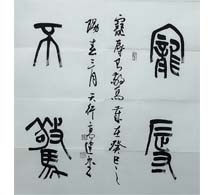 寵辱
不驚
寵辱不驚歲在癸巳之
陽春三月天行